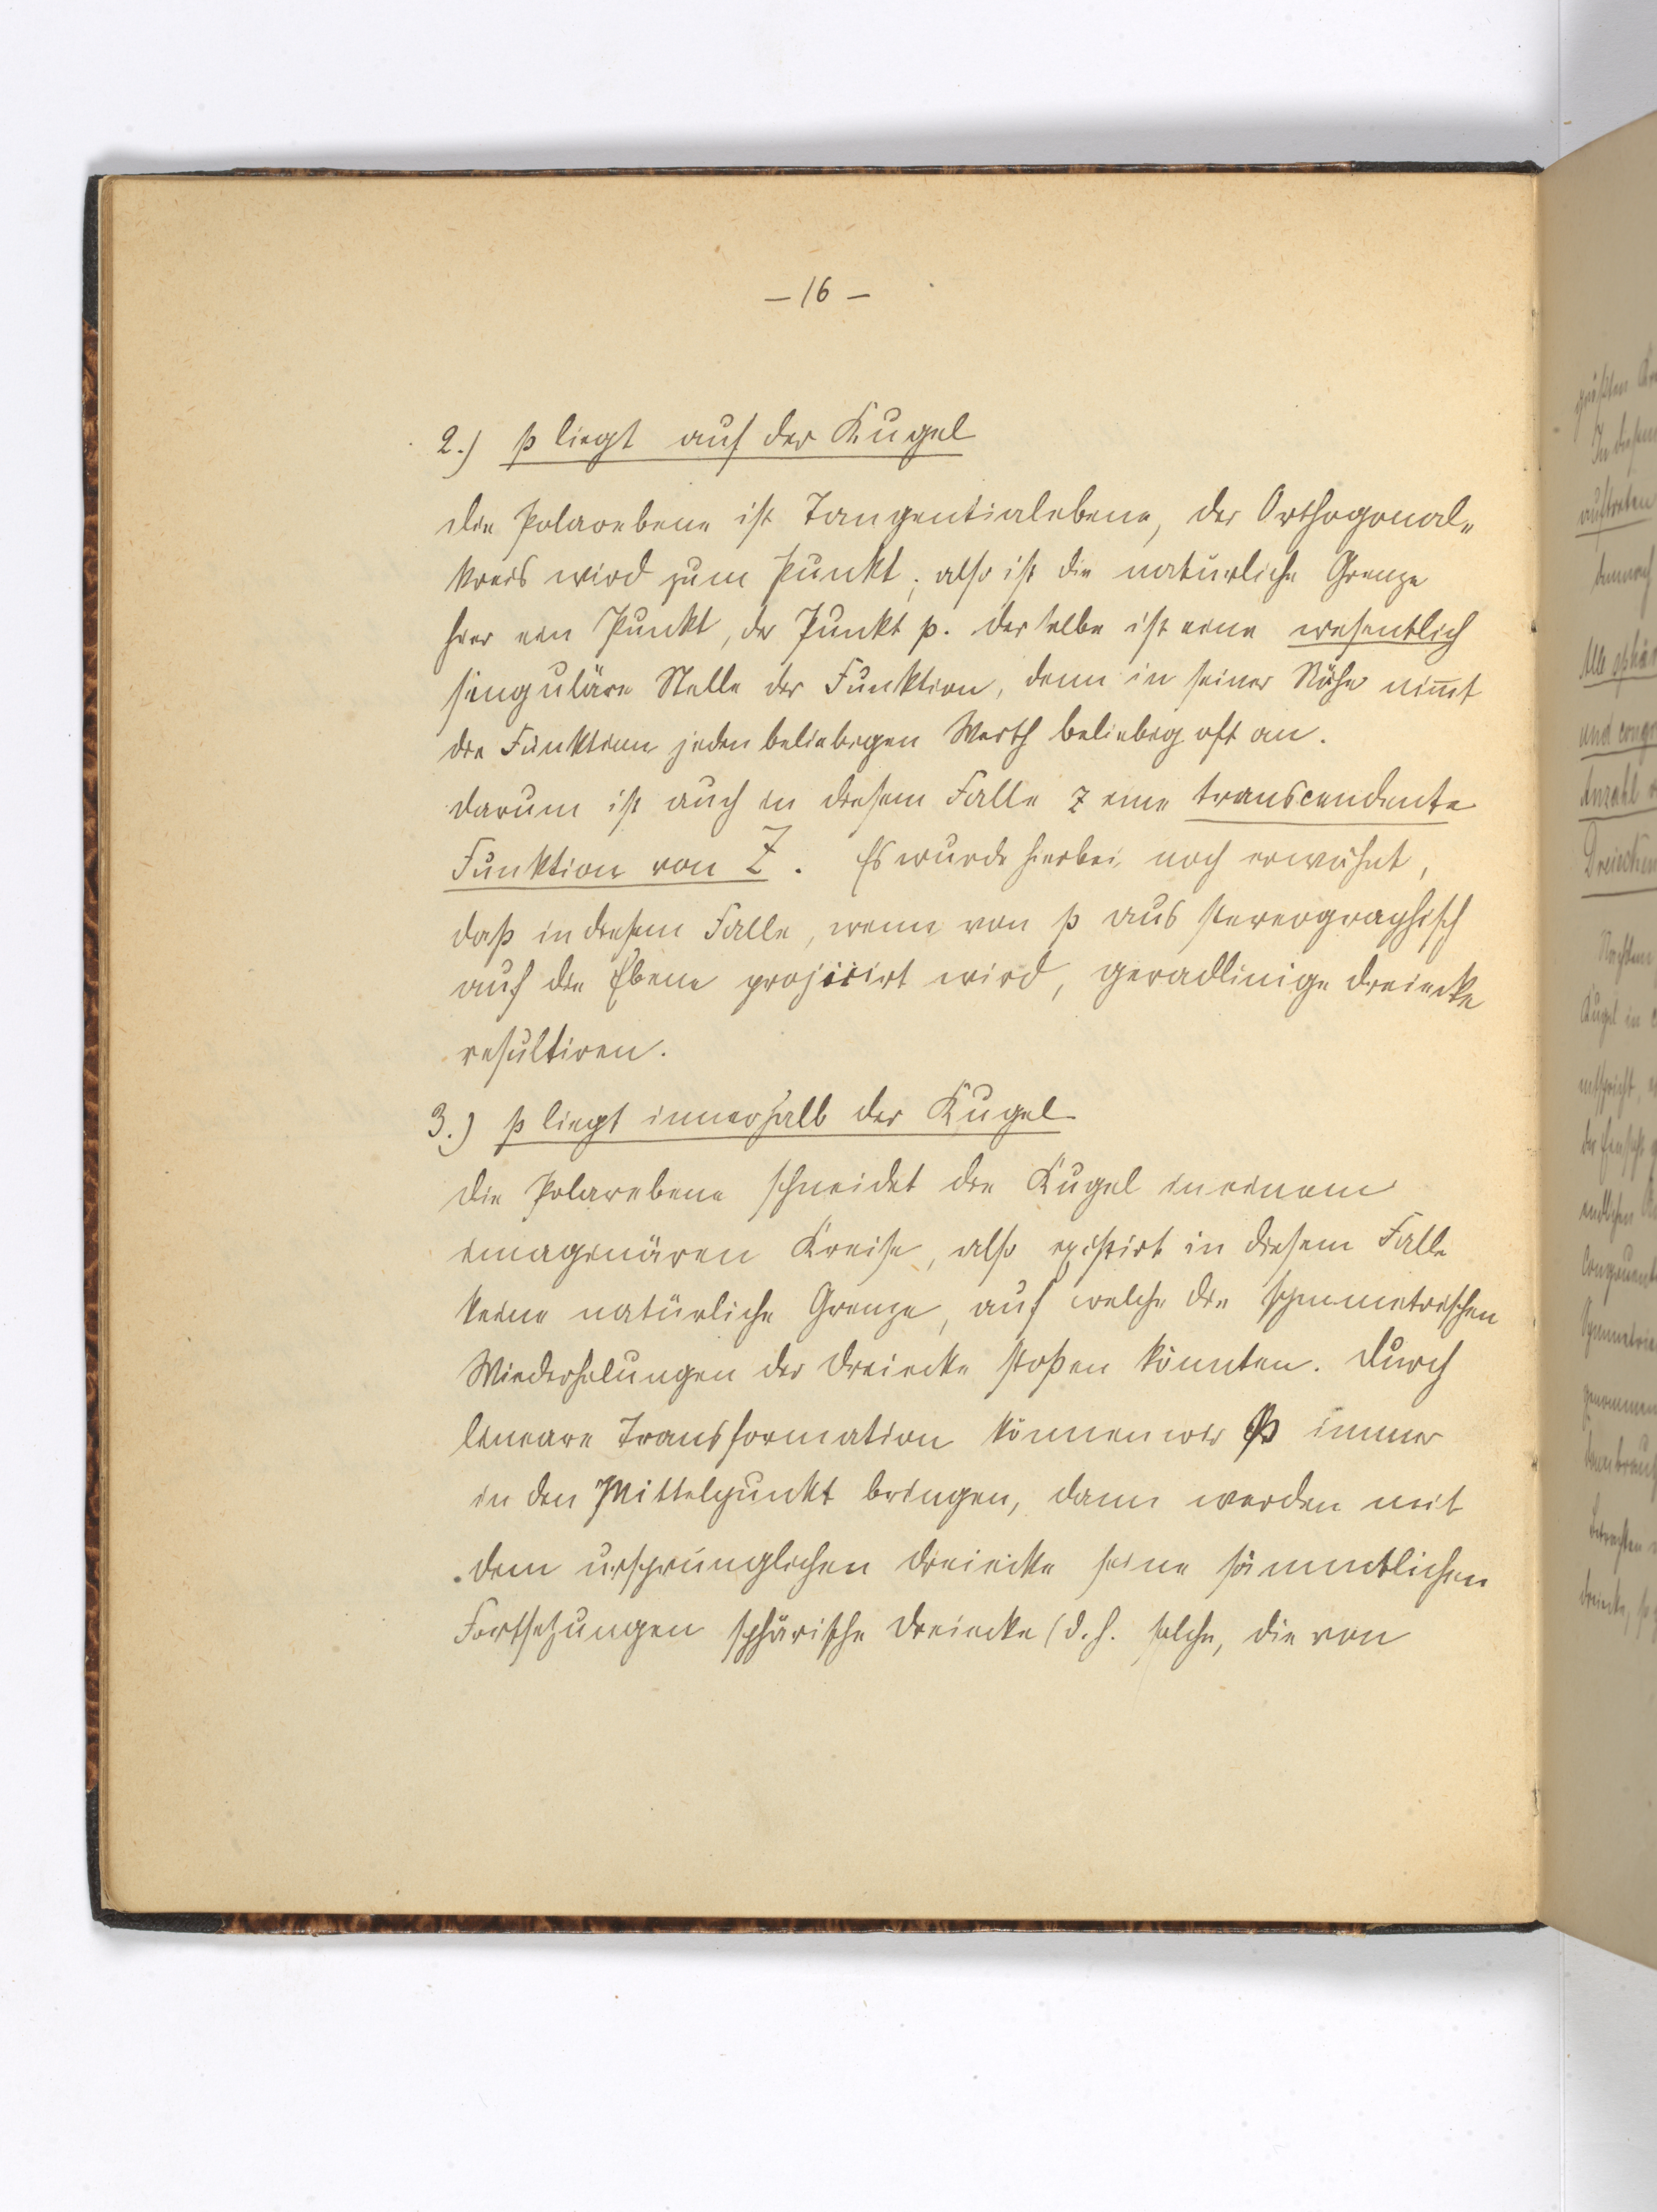 – 16 –
2.) p liegt auf der Kugel
Die Polarebene ist Tangentialebene, der Orthogonal-
kreis wird zum Punkt, also ist die natürliche Grenze
hier ein Punkt, der Punkt p. Derselbe ist eine wesentlich
singuläre Stelle der Funktion, denn in seiner Nähe nim̄t
die Funktion jeden beliebigen Werth beliebig oft an.
Darum ist auch in diesem Falle z eine transcendente
Funktion von Z. Es wurde hierbei noch erwähnt,
daß in diesem Falle, wenn von p aus stereographisch
auf die Ebene projicirt wird, geradlinige Dreiecke
resultiren.
3.) p liegt innerhalb der Kugel
Die Polarebene schneidet die Kugel in einem
imaginären Kreise, also existirt in diesem Falle
keine natürliche Grenze, auf welche die symmetrischen
Wiederholungen der Dreiecke stoßen könnten. Durch
lineare Transformation können wir p immer
in den Mittelpunkt bringen, dann werden mit
dem ursprünglichen Dreiecke seine sämmtlichen
Fortsetzungen sphärische Dreiecke (d. h. solche, die von